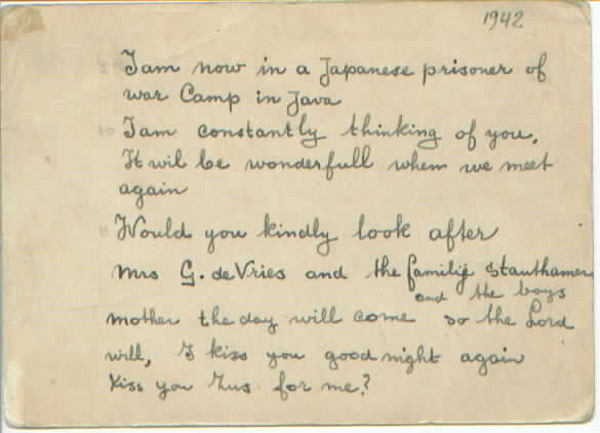 1942
I am now in a Japanese prisoner of
war Camp in Java
I am constantly thinking of you.
It wil be wonderfull when we meet
again
Would you kindly look after
Mrs G. de Vries and the familij Stauthamer
and the boys
mother the day will come so the Lord
will, I kiss you good night again
Kiss you Zus for me?